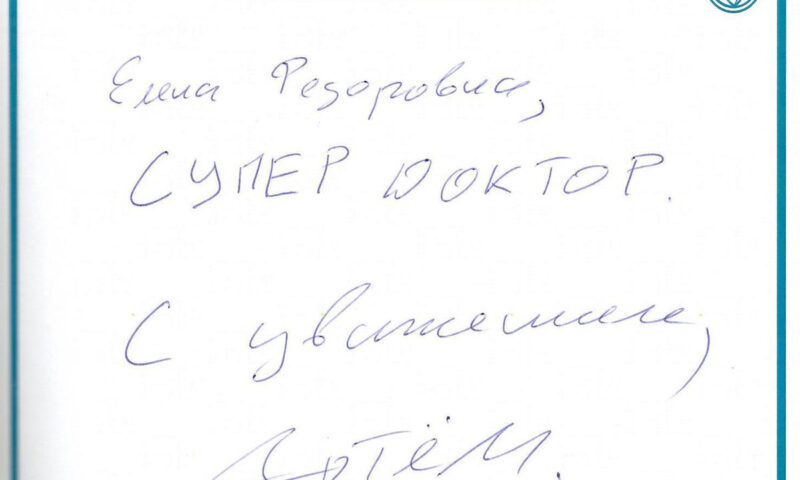 Елена Федоровна,
СУПЕР ДОКТОР.
С уважением,
Артём.